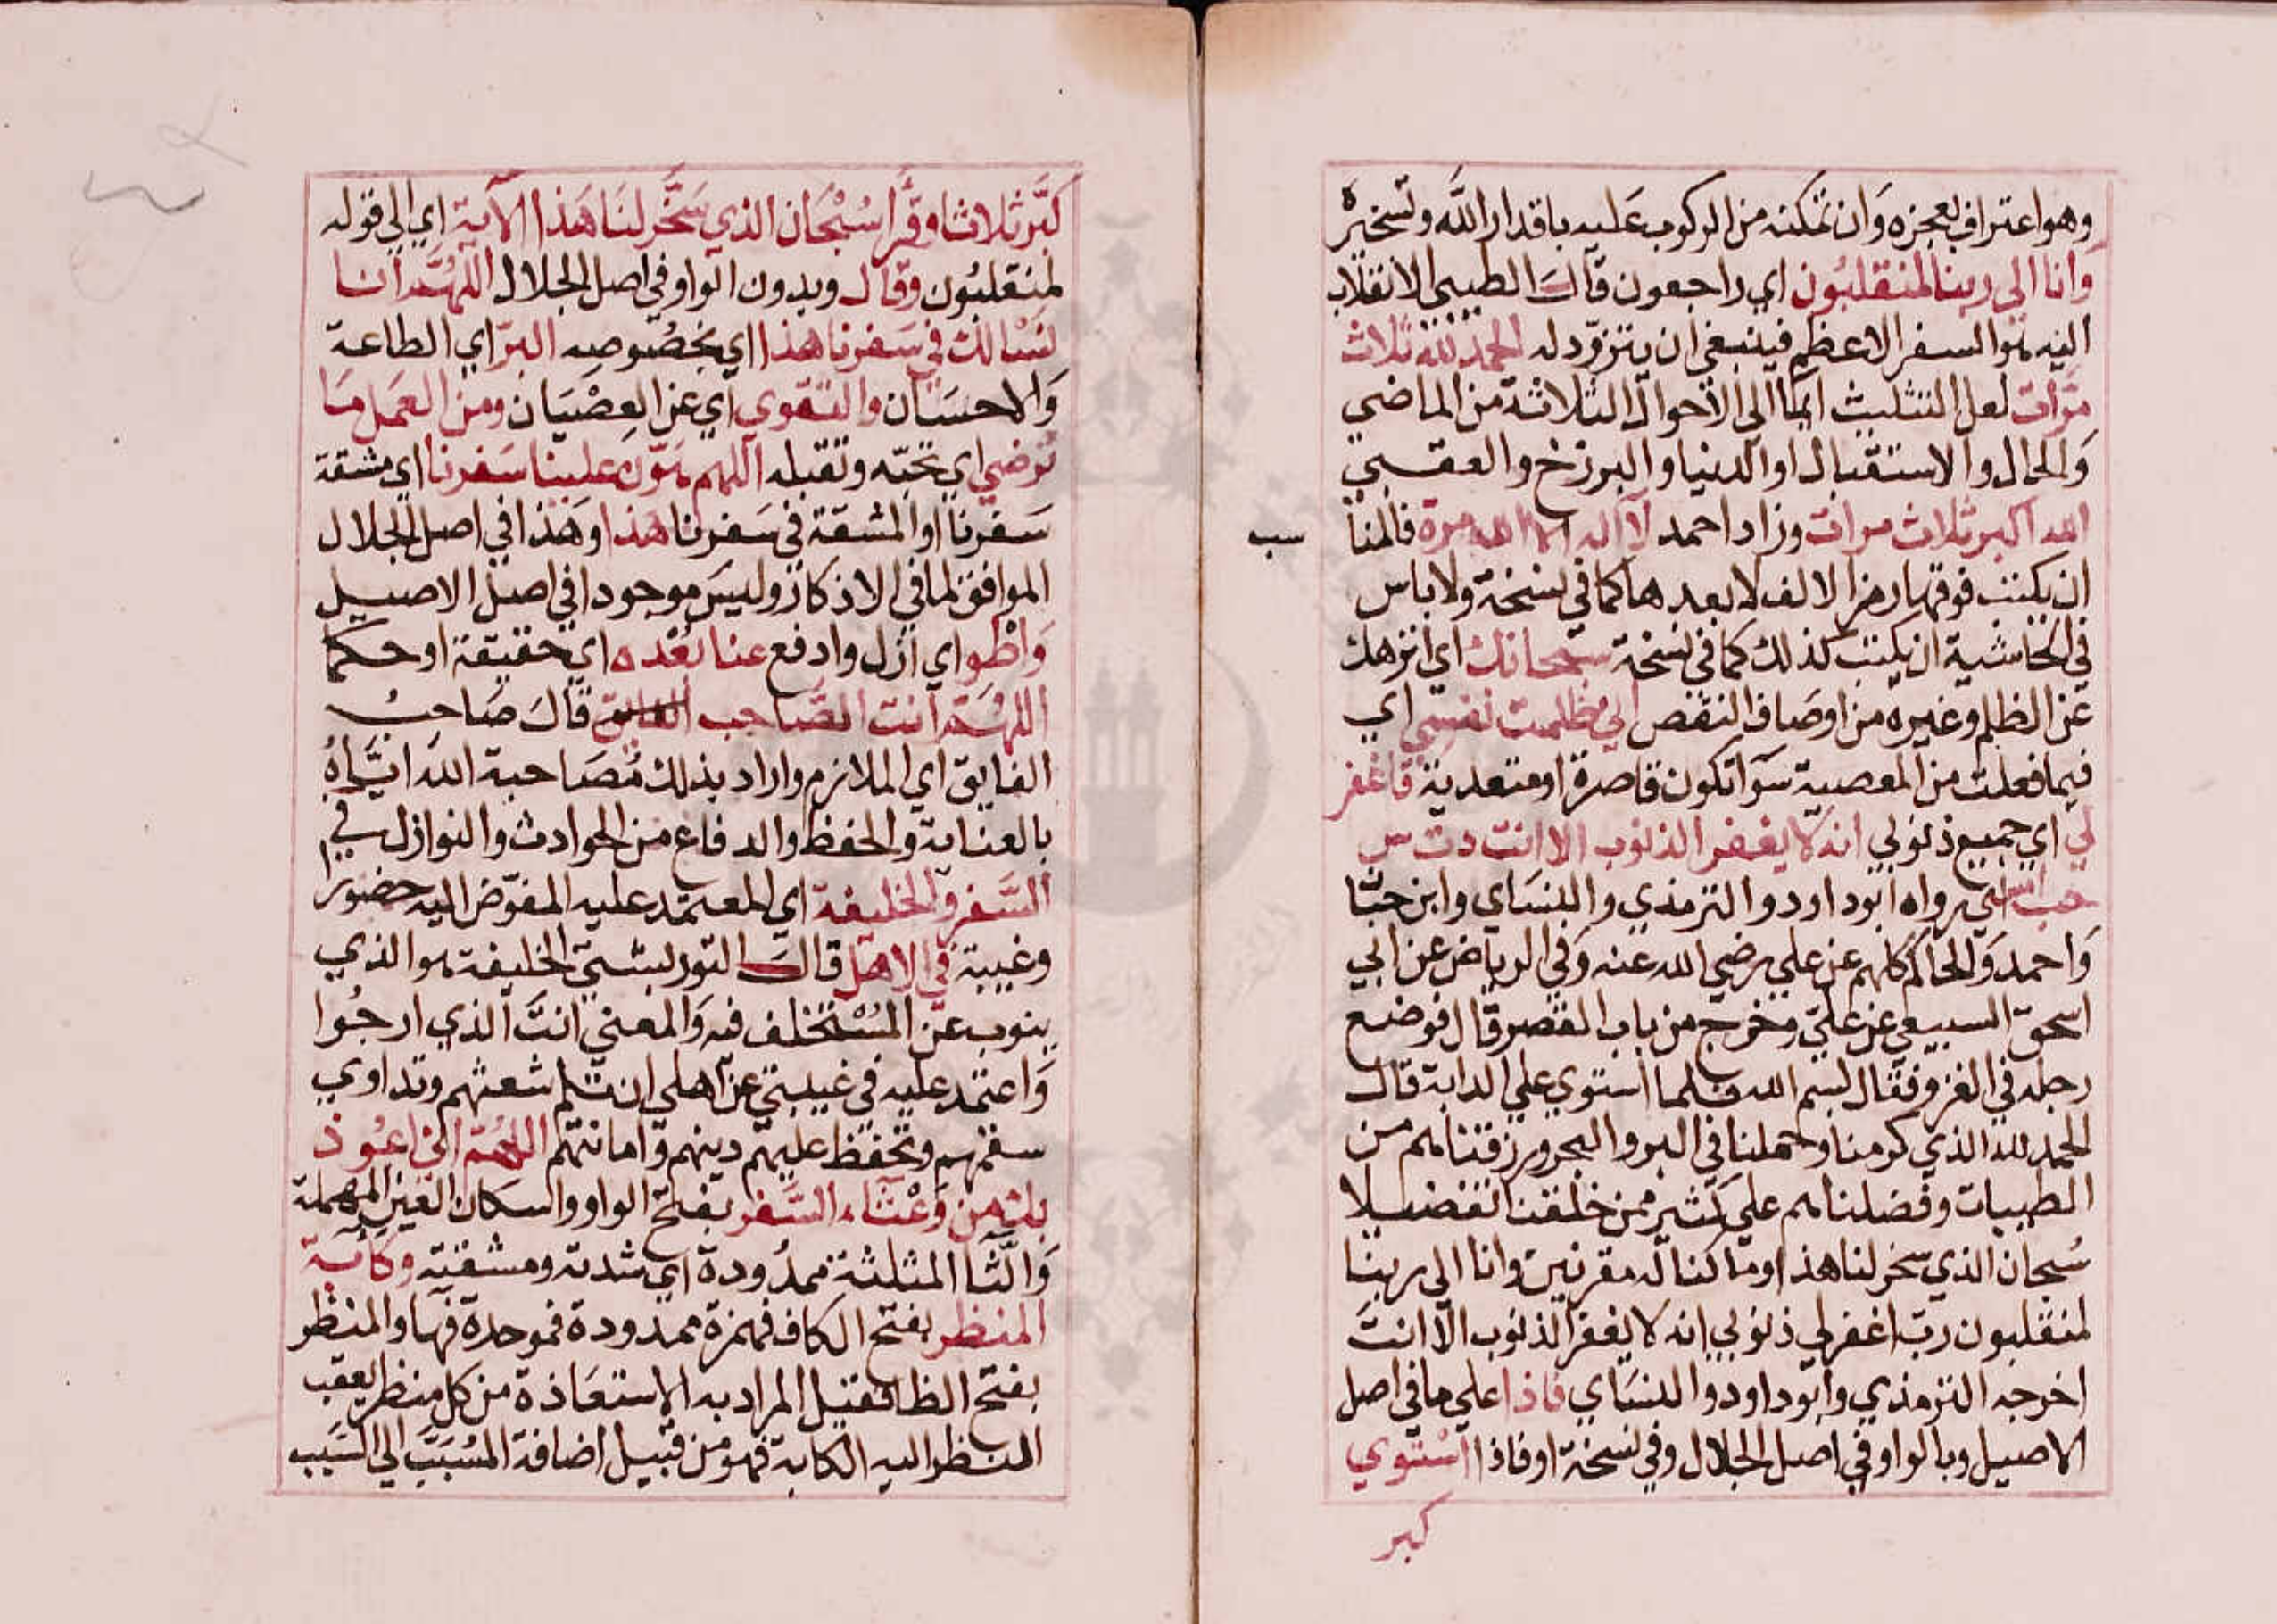 وهو اعتراف بعجزه وان تمكنه من الركوب عليه باقدار الله وتسخيره
وانا الى ربنا لمنقلبون اي راجعون قال الطيبي الانقلاب
اليه هو السفر الاعظم فينبغي ان يتزود له الحمد لله ثلاث
مرات لعل التثليث ايما الى الاحوال الثلاثة من الماضي
والحال والاستقبال او الدنيا والبرزخ والعقبي
الله اكبر ثلاث مرات وزاد احمد لا اله الا الله مرة فالمنا
سب
ان يكتب فوقها رمز الالف لا بعدها كما في نسخة ولا باس
في الحاشية ان يكتب كذلك كما في نسخة سبحانك اي انزهك
عن الظلم وغيره من اوصاف النقص اني ظلمت نفسي اي
فيما فعلت من المعصية سوآ تكون قاصرة او متعدية فاغفر
لي اي جميع ذنوبي انه لا يغفر الذنوب الا انت دت س
حب امس اي رواه ابوداود والترمذي والنساي وابن حبا
واحمد والحاكم كلهم عن علي رضي الله عنه وفي الرياض عن ابي
اسحق السبيعي عن علي وخرج من باب القصر قال فوضع
رجله في الغرز فقال بسم الله فلما استوي علي الدابة قال
الحمد لله الذي كرمنا وحملنا في البر والبحر ورزقنا هم من
الطيبات وفضلنا هم علي كثير ممن خلقنا تفضيلا
سبحان الذي سخر لنا هذا وما كنا له مقرنين وانا الى ربنا
لمنقلبون رب اغفر لي ذنوبي انه لا يغفر الذنوب الا انت
اخرجه الترمذي وابوداود والنساي فاذا علي ما في اصل
الاصيل وبالواو في اصل الجلال وفي نسخة او فاذا استوي
كبر
كبر ثلاثا وقرا سبحان الذي سخر لنا هذا الاية اي الى قوله
لمنقلبون وقال وبدون الواو في اصل الجلال اللهم انا
نسالك في سفرنا هذا اي بخصوصه البر اي الطاعة
والاحسان والتقوي اي عن العصيان ومن العمل ما
ترضي اي تحبه وتقبله اللهم هون علينا سفرنا اي مشقة
سفرنا او المشقة في سفرنا هذا وهذا في اصل الجلال
الموافق لما في الاذكار وليس موجودا في اصل الاصيل
واطو اي ازل وادفع عنا بعده اي حقيقة او حكما
اللهم انت الصاحب قال صاحب
الفايق اي الملازم واراد بذلك مصاحبة الله اياه
بالعناية والحفظ والدفاع من الحوادث والنوازل في
السفر والخليفة اي المعتمد عليه المفوض اليه حضورا
وغيبة في الاهل قال التوربشتي الخليفة هو الذي
ينوب عن المستخلف فيه والمعني انت الذي ارجوا
واعتمد عليه في غيبتي عن اهلي ان تلم شعثهم وتداوي
سقمهم وتحفظ عليهم دينهم وامانتهم اللهم اني اعوذ
بك من وعثاء السفر بفتح الواو واسكان العين المهملة
والثا المثلثة ممدودة اي شدته ومشقته وكابة
المنظر بفتح الكاف فهمزة ممدودة فموحدة فها والمنظر
بفتح الظا فقيل المراد به الاستعاذة من كل منظر يعقب
النظر اليه الكابة فهو من قبيل اضافة المسبب الي السبب